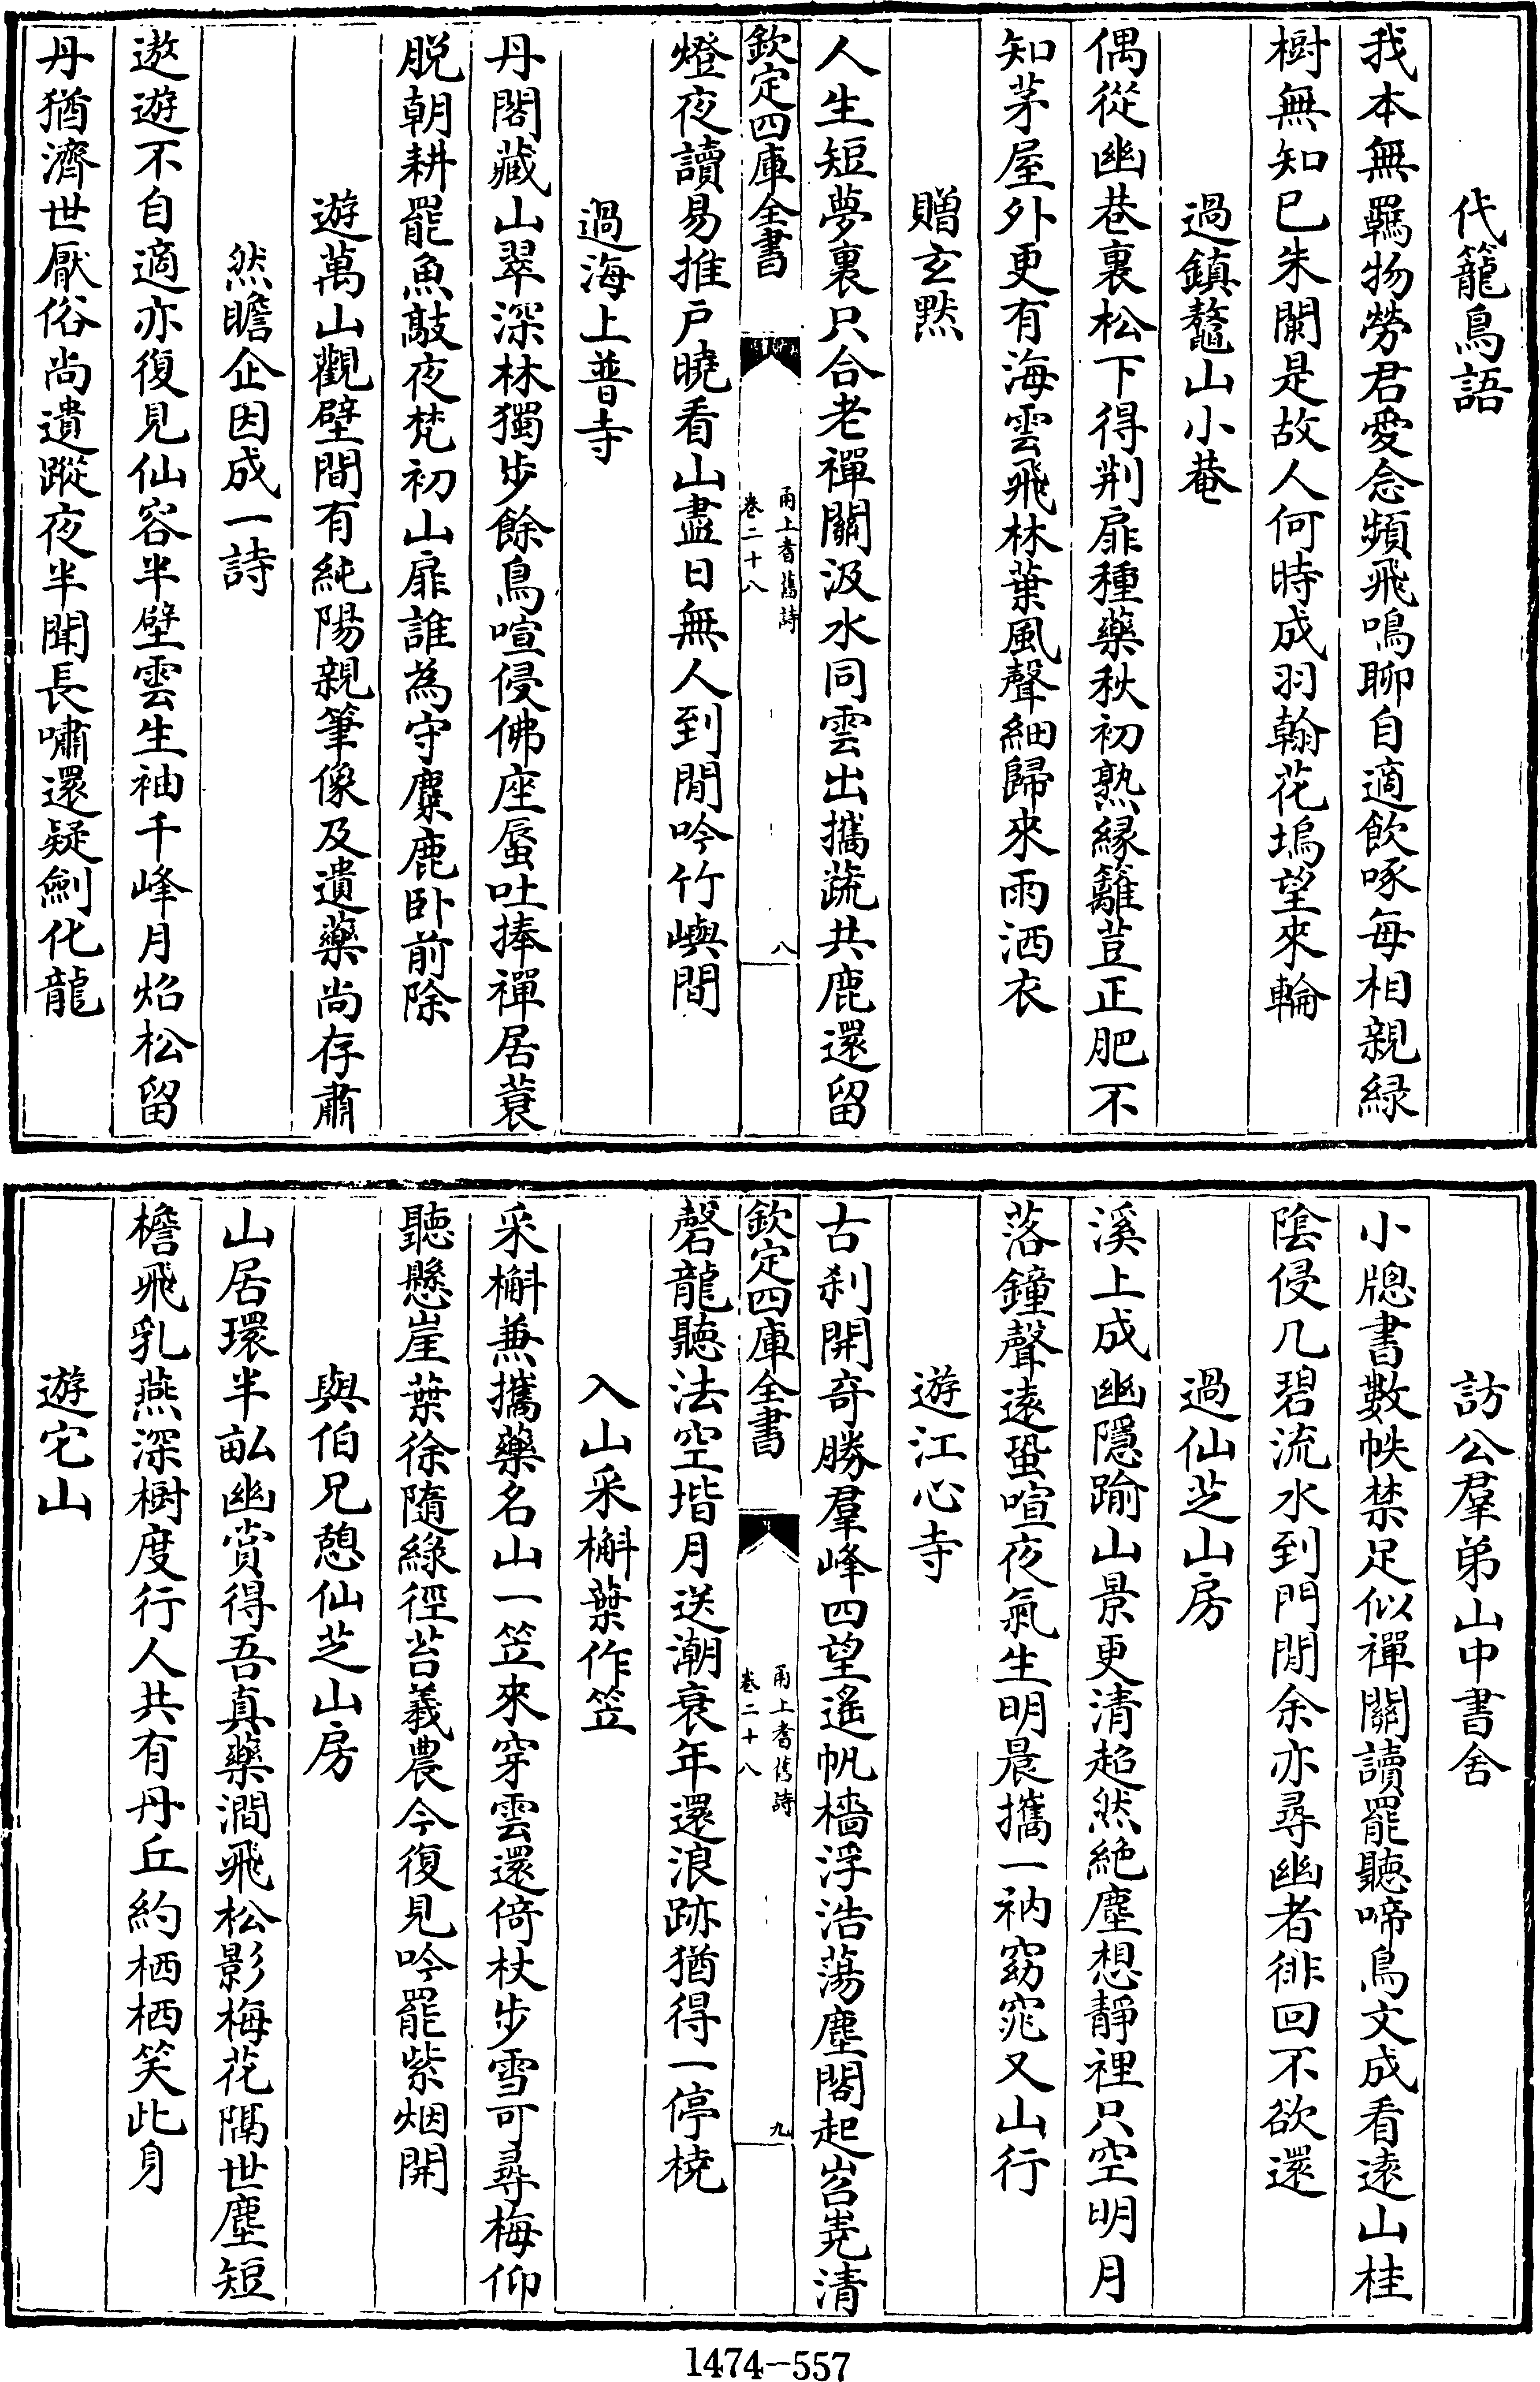 代籠鳥語
我本無羈物勞君愛念頻飛鳴聊自適飲啄每相親緑
樹無知已朱闌是故人何時成羽翰花塢望來輪
過鎮鼇山小菴
偶從幽巷裏松下得荆扉種藥秋初熟縁籬荳正肥不
知茅屋外更有海雲飛林葉風聲細歸來雨洒衣
贈玄黙
人生短夢裏只合老禪關汲水同雲出攜蔬共鹿還留
欽定四庫全書
甬上耆舊詩
卷二十八
八
燈夜讀易推戸曉看山盡日無人到閒吟竹嶼間
過海上普寺
丹閣藏山翠深林獨步餘鳥喧侵佛座蜃吐捧禪居蓑
脱朝耕罷魚敲夜梵初山扉誰為守麋鹿卧前除
遊萬山觀壁間有純陽親筆像及遺藥尚存肅
然瞻企因成一詩
遨遊不自適亦復見仙容半壁雲生袖千峰月焰松留
丹猶濟世厭俗尚遺蹤夜半聞長嘯還疑劍化龍
訪公羣弟山中書舍
小牕書數帙禁足似禪關讀罷聽啼鳥文成看遠山桂
陰侵几碧流水到門閒余亦尋幽者徘回不欲還
過仙芝山房
溪上成幽隱踰山景更清超然絶塵想靜裡只空明月
落鐘聲遠蛩喧夜氣生明晨攜一衲窈窕又山行
遊江心寺
古刹開奇勝羣峰四望遙帆檣浮浩蕩塵閣起岧嶤清
欽定四庫全書
甬上耆舊詩
卷二十八
九
磬龍聽法空堦月送潮衰年還浪跡猶得一停橈
入山采槲葉作笠
采槲兼攜藥名山一笠來穿雲還倚杖步雪可尋梅仰
聽懸崖葉徐隨緑徑苔羲農今復見吟罷紫烟開
與伯兄憩仙芝山房
山居環半畝幽賞得吾真藥澗飛松影梅花隔世塵短
檐飛乳燕深樹度行人共有丹丘約栖栖笑此身
遊它山
1474-557